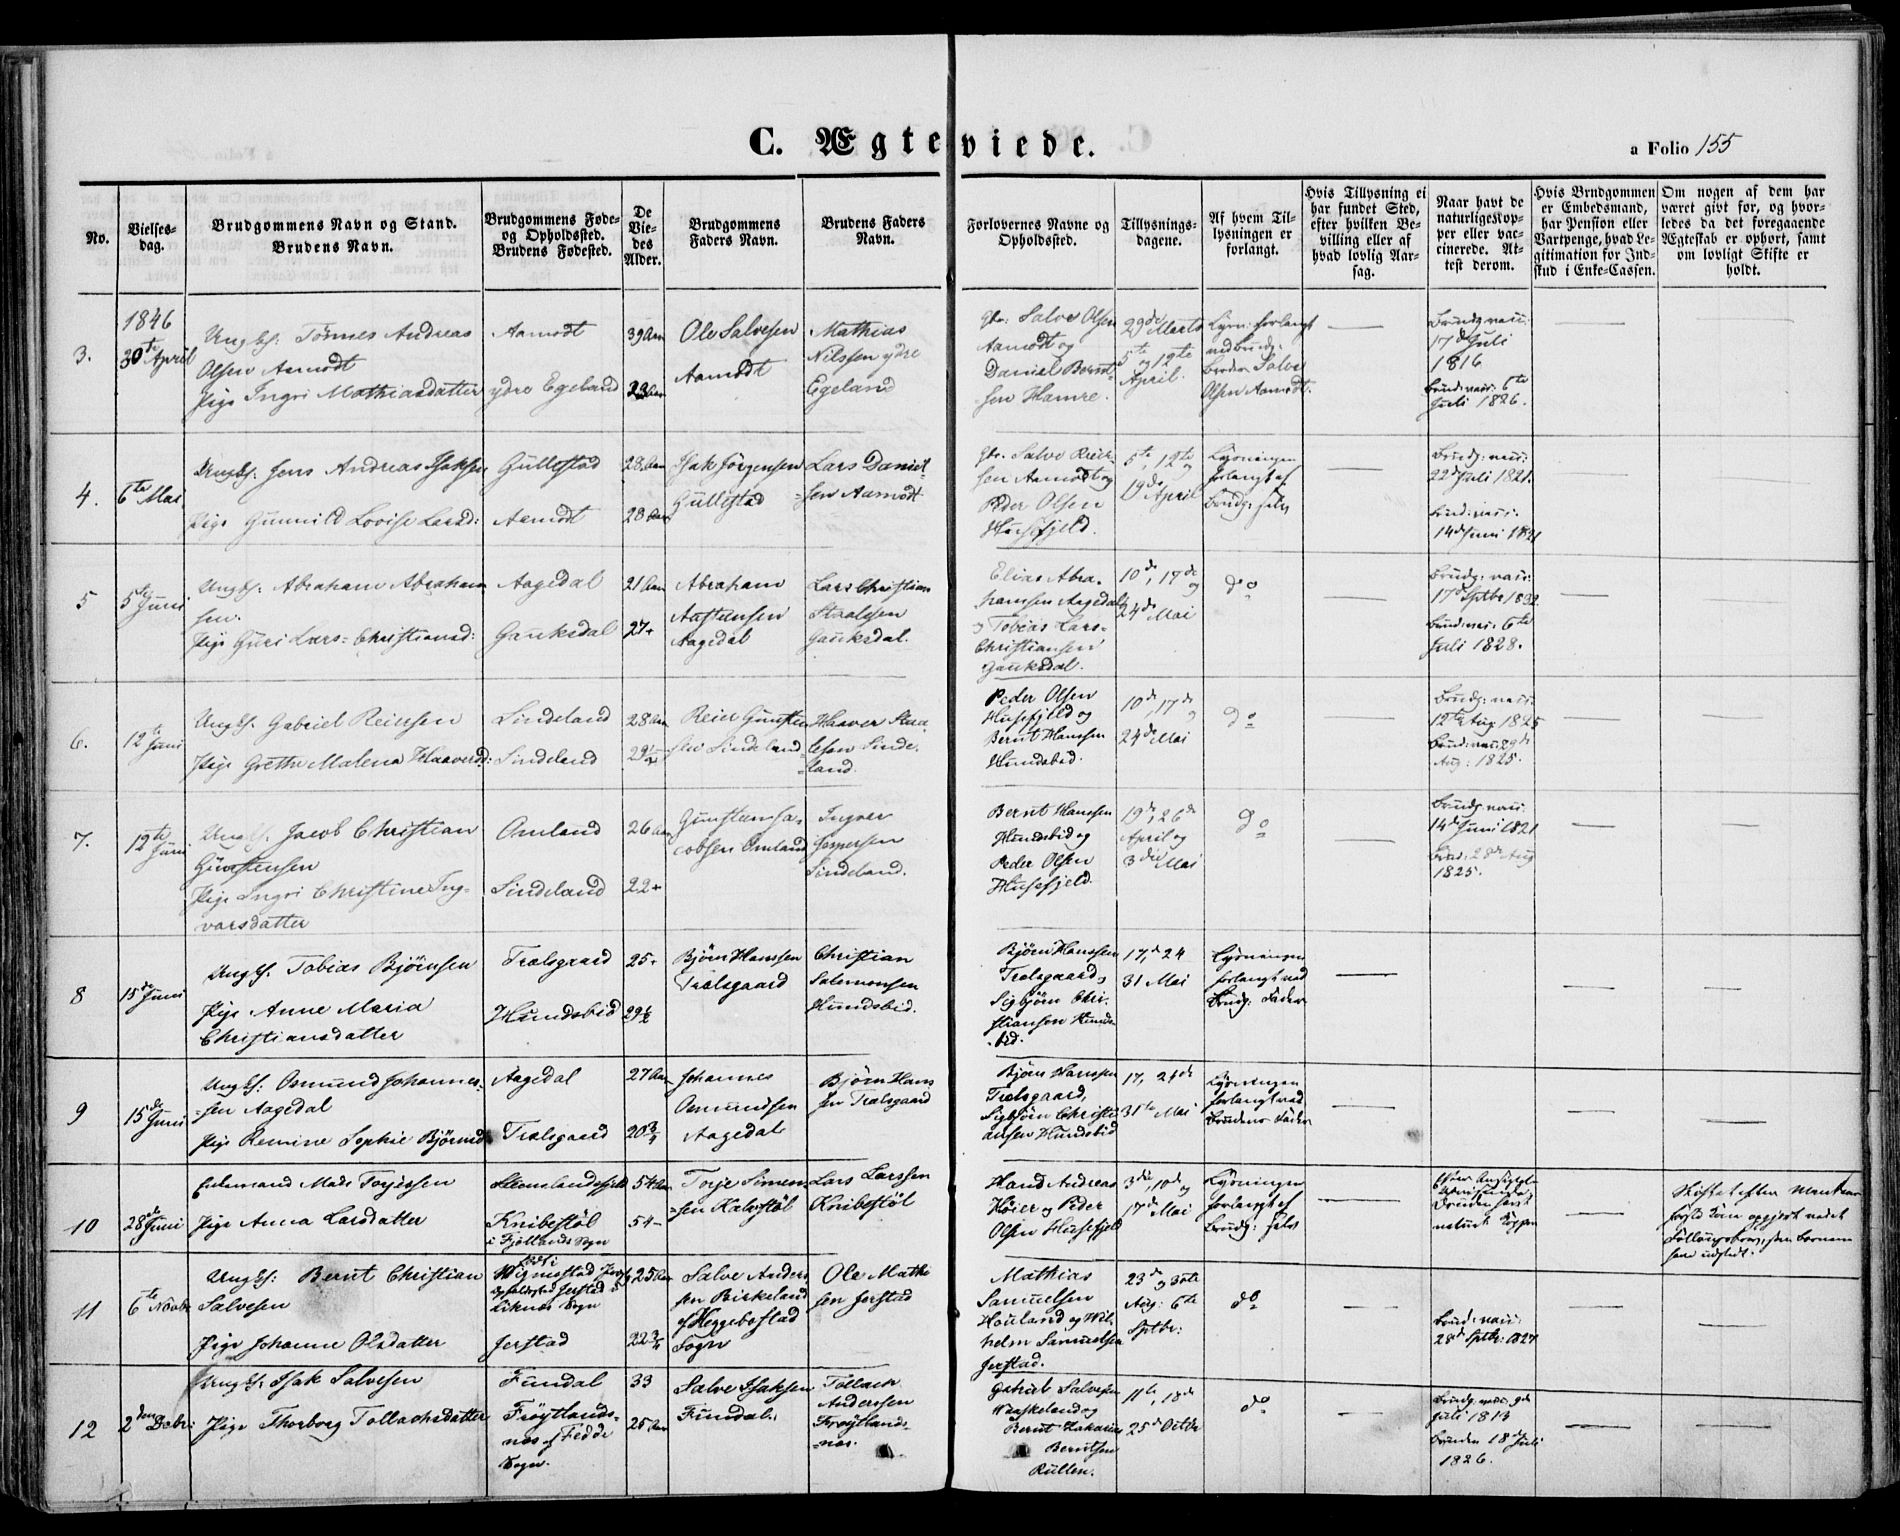 C. Ægteviede.
a Folio 155
No.
Vielses-
dag.
Brudgommens Navn og Stand.
Brudens Navn.
Brudgommens Føde-
og Opholdssted.
Brudens Fødested.
De
Vie-
des
Alder.
Brudgommens
Faders Navn.
Brudens Faders
Navn.
Forlovernes Navne og
Opholdssted.
Tillysnings-
dagene.
Af hvem Til-
lysningen er
forlangt.
Hvis Tillysning ei
har fundet Sted,
efter hvilken Be-
villing eller af
hvad lovlig Aar-
sag.
Naar havt de
naturlige Kop-
per eller vac-
cinerede. At-
test derom.
Hvis Brudgommen
er Embedsmand,
har Pension eller
Vartpenge, hvad Le-
gitimation for Ind-
skud i Enke-Cassen.
Om nogen af dem har
været givt for, og hvor-
ledes da det foregaaende
Ægteskab er ophørt, samt
om lovligt Skifte er
holdt.
1846
3.
30te April
Ungk: Tønnes Andreas
Olsen Aamodt
Pige Ingri Mathiasdatter
Aamodt
ydre Egeland
39 Aar
23 Aar
Ole Salvesen
Aamodt
Mathias
Nilssen ydre
Egeland
Gbr: Salve Olsen
Aamodt og
Daniel Bernt-
sen Hamre.
29de Marts
5te og 12te
April.
Lysn: forlangt
ved Brudg:
Broder Salve
Olsen Aamodt.
Brudg. vacc:
17de Juli
1816
Brud: vacc: 6te
Juli 1826.
4.
6te Mai
Ungk: Jens Andreas Isaksen
Pige Gunnild Lovise Larsd:
Gullestad
Aamodt
28 Aar
28 Aar
Isak Jørgensen
Gullestad
Lars Daniel-
sen Aamodt
Gbr. Salve Reier-
sen Aamodt og
Peder Olsen
Husefjeld.
5te, 12te og
19de April
Lysningen
forlangt af
Brudg: selv
Brudg: vacc:
22de Juli 1821.
Brud: vacc:
14de Juni 1821
5
5te Juni
Ungk: Abraham Abraham
sen.
Pige Guri Lars: Christiansd:
Aagedal
Gauksdal
21 Aar
27 +
Abraham
Aastensen
Aagedal
Lars Christian
Staalesen
Gauksdal.
Elias Abra-
hamsen Aagedal
og Tobias Lars-
Christiansen
Gauksdal.
10de, 17de og
24de Mai
do
Brudg: vacc:
17de Sptbr 1832
Brud: vacc: 6te
Juli 1828.
6.
12te Juni
Ungk. Gabriel Reiersen
Pige Grethe Malena Haaversd:
Lindeland
Lindeland
28 Aar
Reier Gunsten
sen Lindeland
Haaver Staa
lesen Linde-
land.
Peder Olsen
Husefjeld og
Bernt Hanssen
Hundsbid.
10de, 17de og
24de Mai
do
Brudg: vacc:
12te Aug 1825
Brud: vacc: 29de
Aug: 1825.
7.
12te Juni
Ungk. Jacob Christian
Gunstensen
Pige Ingri Christine Ing-
varsdatter
Omland
Lindeland
26 Aar
22 +
Gunsten Ja-
cobsen Omland
Ingver
Jespersen
Lindeland.
Bernt Hanssen
Hundsbid og
Peder Olsen
Husefjeld.
19de, 26de
April og
3die Mai
do
Brudg. vacc:
14de Juni 1821
Brud: 28de Aug
1825.
8
15de Juni
Ungk. Tobias Bjørnsen
Pige Anne Maria
Christiansdatter
Trælsgaard
Hundsbid
25 -
29½
Bjørn Hanssen
Trælsgaard
Christian
Salemonsen
Hundsbid.
Bjørn Hanssen
Trælsgaard,
Sigbjørn Chri-
stiansen Hunds-
bid.
17de, 24
31 Mai
Lysningen
forlangt ved
Brudg: Fader
9
15de Juni
Ungk: Osmund Johannes-
sen Aagedal
Pige Remine Sophie Bjørnsd
Aagedal
Trælsgaard
27 Aar
20¾
Johannes
Osmundsen
Aagedal
Bjørn Hans
sen Trælsgaard
Bjørn Hanssen
Trælsgaard,
Sigbjørn Christi-
ansen Hundsbid
17, 24de
31te Mai
Lysningen
forlangt ved
Brudens Fader
10
28de Juni
Enkemand Mads Torjessen
Pige Anna Larsdatter
Knibestøl
i Fjotlands Sogn
54 Aar
54 -
Torje Simon-
sen Kalvestøl
Lars Larssen
Knibestøl
Hans Andreas
Høier og Peder
Olsen Husefjeld
3die, 10de og
17de Mai
Lysningen
forlangt af
Brudg: selv
Skifte efter Mandens
første Kone
11
6te Novbr
Ungk: Bernt Christian
Salvesen
Pige Johanne Olsdatter
Født i
Opholdssted Jerstad i
Liknes Sogn
Jerstad
25 Aar
22¾
Salve Anders
sen Birkeland
af Heggebostad
Sogn
Ole Mathi
sen Jerstad
Mathias
Samuelsen
Houland og Wil-
helm Samuelsen
Jerstad.
23de og 30te
Aug: 6te
Sptbr:
do
Brud: vacc:
28de Sptbr: 1824
12
2den Decbr:
Ungk: Isak Salvesen
Pige Thorborg Tollachsdatter
Fundal
Frøytlands-
nes af Fedde
Sogn.
33
25 Aar
Salve Isaksen
Fundal.
Tollach
Anderssen
Frøytlands-
nes.
Gabriel Salvesen
Waaskeland og
Bernt Zakarias
Berntsen
Rullen.
11te, 18de
25de Octbr
do
Brudg: vacc: 9de
Juli 1813
Bruden 18de Juli
1826.